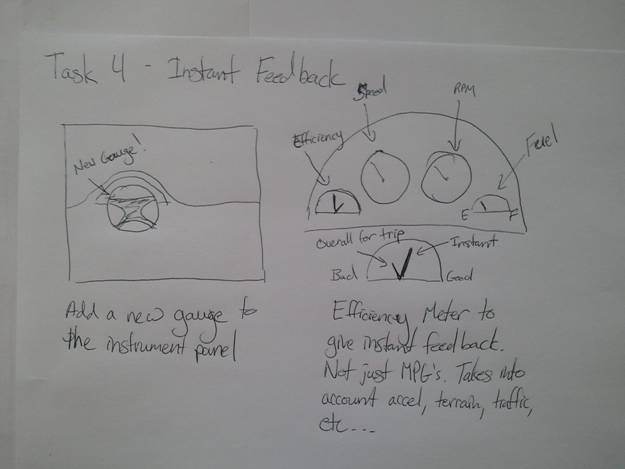 Task 4 - Instant Feedback
New Gauge!
Add a new gauge to
the instrument panel
Speed
RPM
Efficiency
Fuel
E F
Overall for trip
Instant
Bad
Good
Efficiency Meter to
give instant feedback.
Not just MPG's. Takes into
account accel, terrain, traffic,
etc...